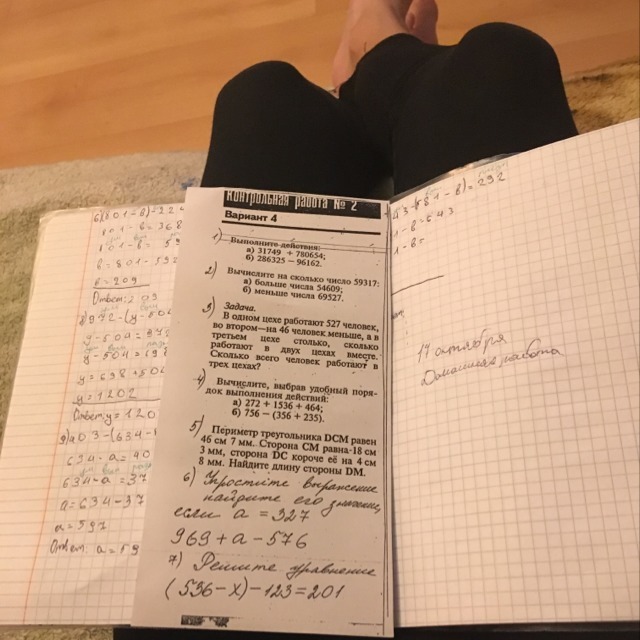 Контрольная работа № 2
Вариант 4
1) Выполните действия:
а) 31749 + 780654;
б) 286325 – 96162.
2) Вычислите на сколько число 59317:
а) больше числа 54609;
б) меньше числа 69527.
3) Задача.
В одном цехе работают 527 человек,
во втором—на 46 человек меньше, а в
третьем цехе столько, сколько
работают в двух цехах вместе.
Сколько всего человек работают в
трех цехах?
4) Вычислите, выбрав удобный поря-
док выполнения действий:
а) 272 + 1536 + 464;
б) 756 – (356 + 235).
5) Периметр треугольника DCM равен
46 см 7 мм. Сторона СМ равна 18 см
3 мм, сторона DC короче её на 4 см
8 мм. Найдите длину стороны DM.
6) Упростите выражение
найдите его значение,
если а = 327
969 + а – 576
7) Решите уравнение
(536 – х) – 123 = 201
в = 801 – 592
в = 209
Ответ: 209
у = 1202
Ответ: у = 120
634 – а = 37
а = 634 – 37
а = 597
Ответ: а = 59
– в) = 292
17 октября
Домашняя работа